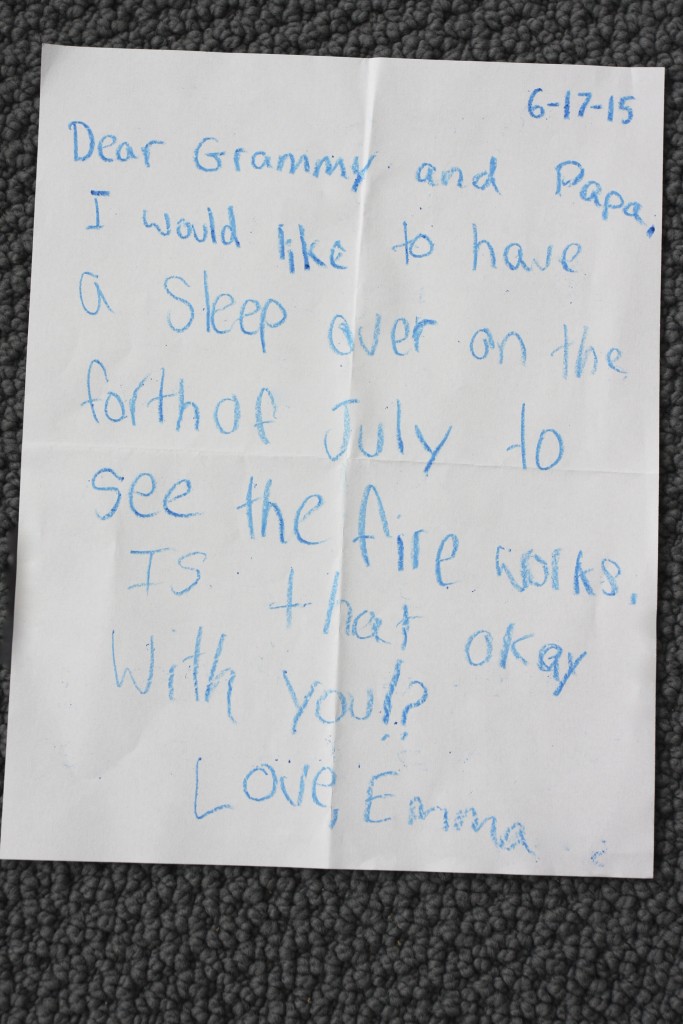 6-17-15
Dear Grammy and Papa,
I would like to have
a Sleep over on the
forth of July to
see the fire works.
Is that okay
With you!?
Love, Emma